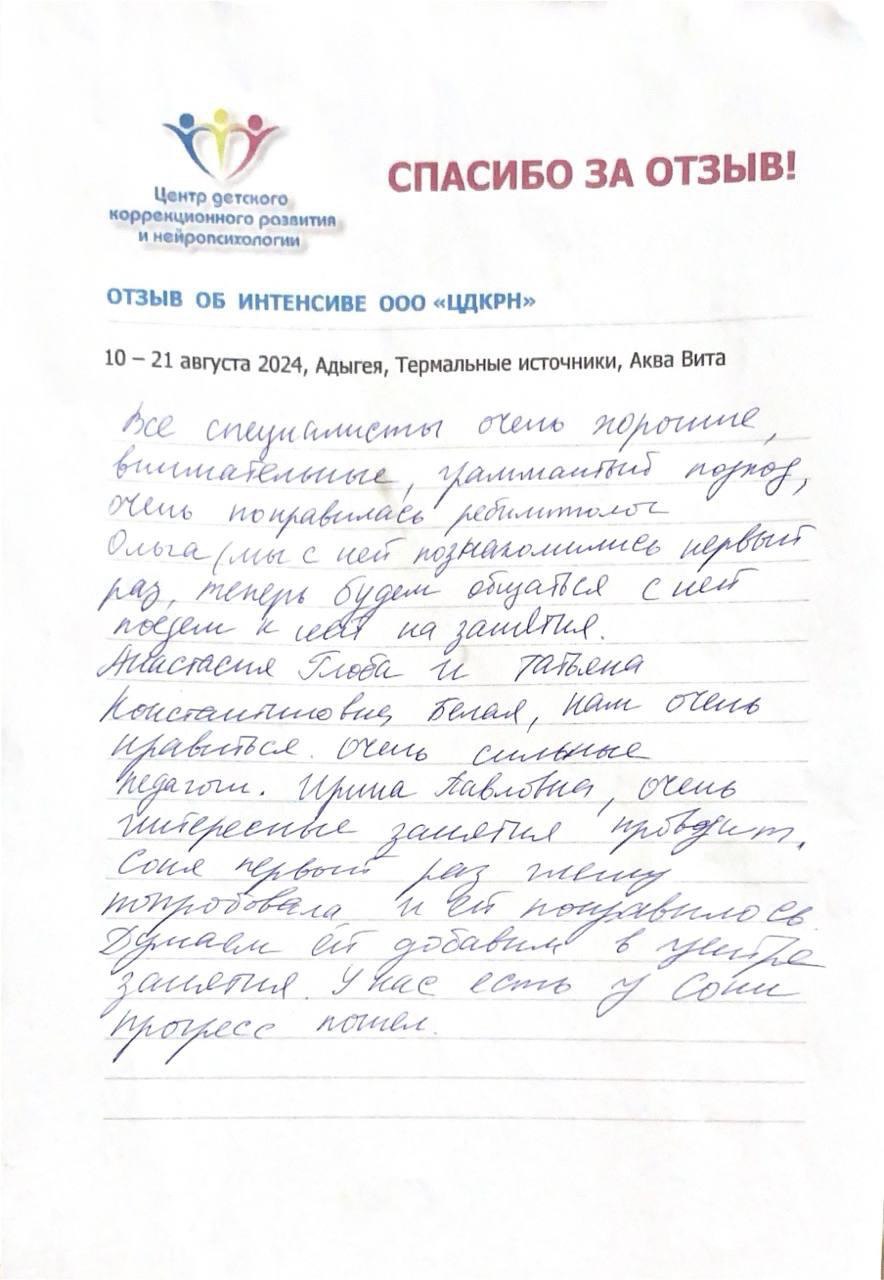 Центр детского
коррекционного развития
и нейропсихологии
СПАСИБО ЗА ОТЗЫВ!
ОТЗЫВ ОБ ИНТЕНСИВЕ ООО «ЦДКРН»
10 – 21 августа 2024, Адыгея, Термальные источники, Аква Вита
Все специалисты очень хорошие,
внимательные, граммантый подход,
очень понравилась ребилитолог
Ольга (мы с ней познакомились первый
раз, теперь будем общаться с ней
поедем к ней на занятия.
Анастасия Глоба и Татьяна
Константиновна Белая, нам очень
нравиться. очень сильные
педагоги. Ирина Павловна, очень
интересные занятия проводит.
Соня первый раз
попробовала и ей понравилось.
Думаем ей добавим в центре
занятия. У нас есть у Сони
прогресс пошел.